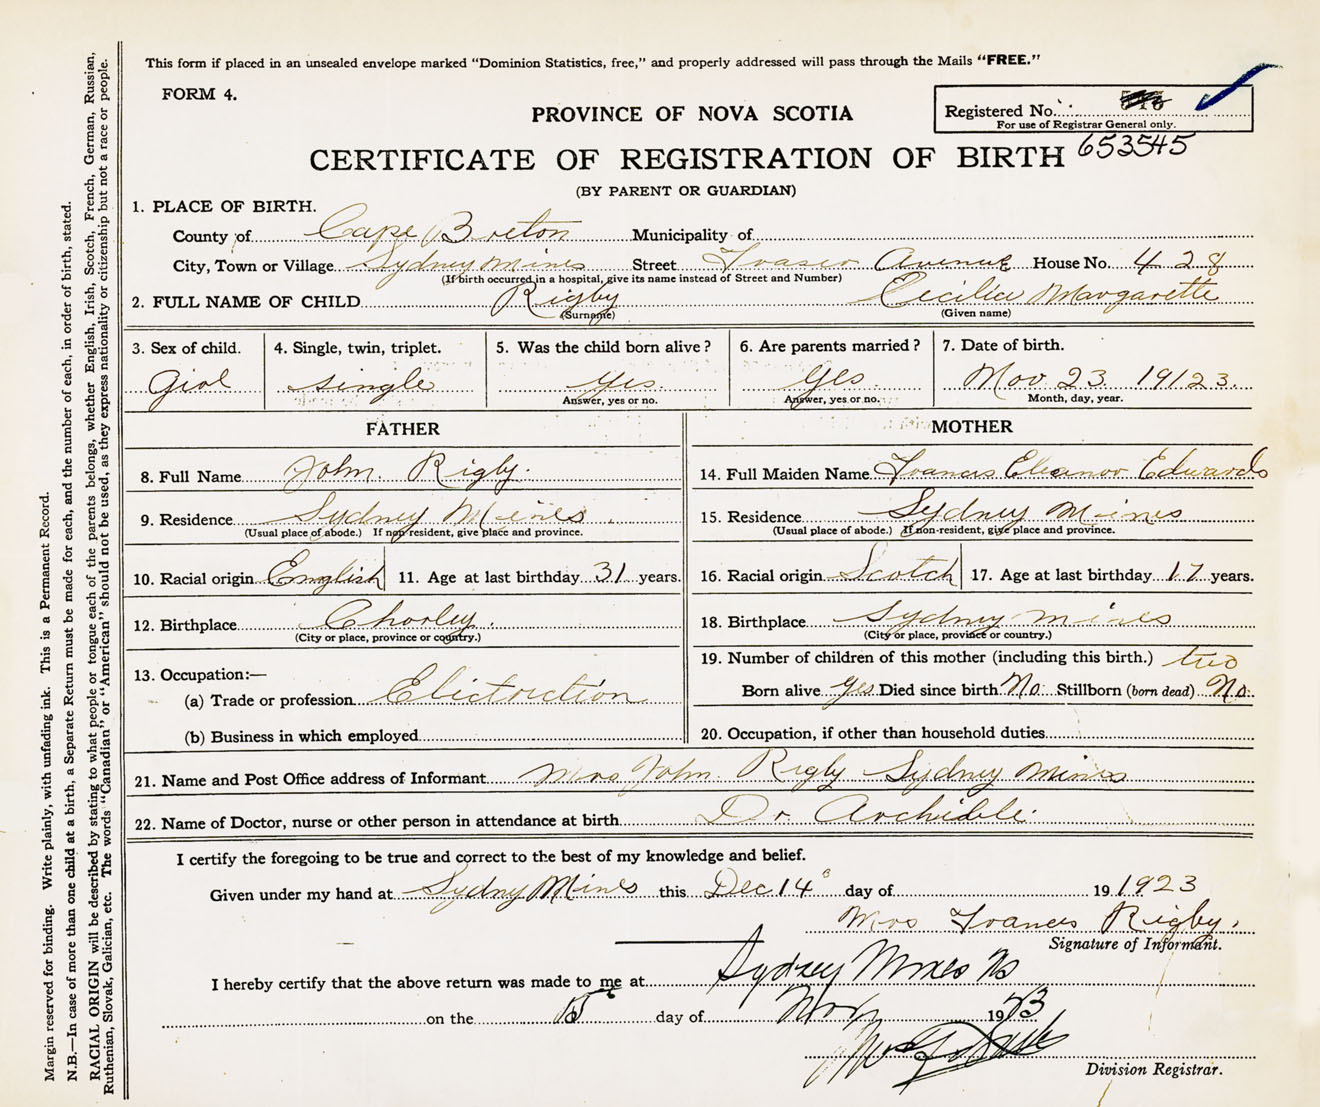 This form if placed in an unsealed envelope marked "Dominion Statistics, free," and properly addressed will pass through the Mails "FREE."
FORM 4.
PROVINCE OF NOVA SCOTIA
Registered No.
For use of Registrar General only.
653545
CERTIFICATE OF REGISTRATION OF BIRTH
(BY PARENT OR GUARDIAN)
1. PLACE OF BIRTH.
County of Cape Breton Municipality of
City, Town or Village Sydney Mines Street Fraser Avenue House No. 428
(If birth occurred in a hospital, give its name instead of Street and Number)
2. FULL NAME OF CHILD Rigby Cecilia Margarette
(Surname) (Given name)
3. Sex of child. 4. Single, twin, triplet. 5. Was the child born alive? 6. Are parents married? 7. Date of birth.
Girl single Yes Yes Nov 23 19123
Answer, yes or no. Answer, yes or no. Month, day, year.
FATHER MOTHER
8. Full Name John Rigby. 14. Full Maiden Name Frances Eleanor Edwards
9. Residence Sydney Mines 15. Residence Sydney Mines
(Usual place of abode.) If non-resident, give place and province. (Usual place of abode.) If non-resident, give place and province.
10. Racial origin English 11. Age at last birthday 31 years. 16. Racial origin Scotch 17. Age at last birthday 17 years.
12. Birthplace Chorley. 18. Birthplace Sydney Mines
(City or place, province or country.) (City or place, province or country.)
13. Occupation:— 19. Number of children of this mother (including this birth.) two
(a) Trade or profession Elictriction Born alive yes Died since birth No Stillborn (born dead) No.
(b) Business in which employed 20. Occupation, if other than household duties
21. Name and Post Office address of Informant Mrs John Rigby Sydney Mines
22. Name of Doctor, nurse or other person in attendance at birth Dr. Archible.
I certify the foregoing to be true and correct to the best of my knowledge and belief.
Given under my hand at Sydney Mines this Dec 14 day of 19 1923
Mrs Frances Rigby.
Signature of Informant.
I hereby certify that the above return was made to me at Sydney Mines NS
on the 15 day of Nov 1923
Division Registrar.
Margin reserved for binding. Write plainly, with unfading ink. This is a Permanent Record.
N.B.—In case of more than one child at a birth, a Separate Return must be made for each, and the number of each, in order of birth, stated.
RACIAL ORIGIN will be described by stating to what people or tongue each of the parents belongs, whether English, Irish, Scotch, French, German, Russian,
Ruthenian, Slovak, Galician, etc. The words "Canadian" or "American" should not be used, as they express nationality or citizenship but not a race or people.